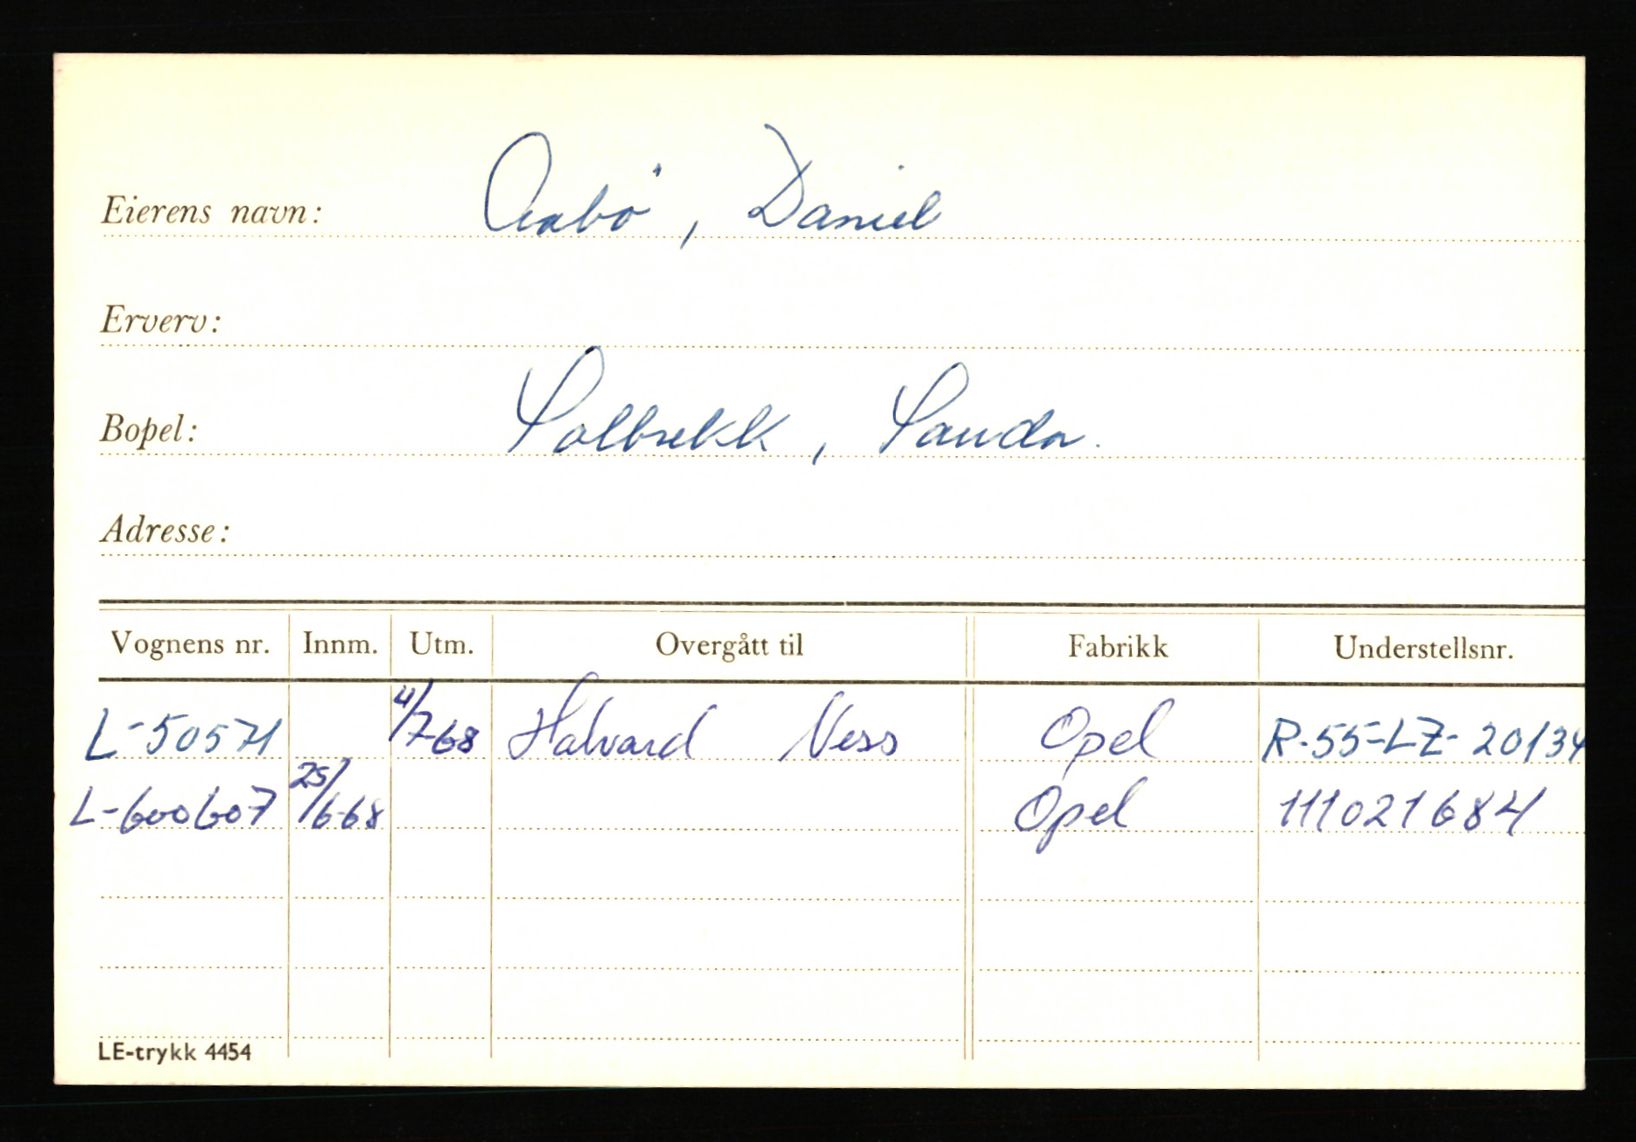 Eierens navn: Aabö, Daniel
Erverv:
Bopel: Solbrekk, Sauda.
Adresse:
Vognens nr. Innm. Utm. Overgått til Fabrikk Understellsnr.
L-50571 4/7-68 Halvard Ness Opel R-55-LZ-20134
L-600607 25/6-68 Opel 111021684
LE-trykk 4454